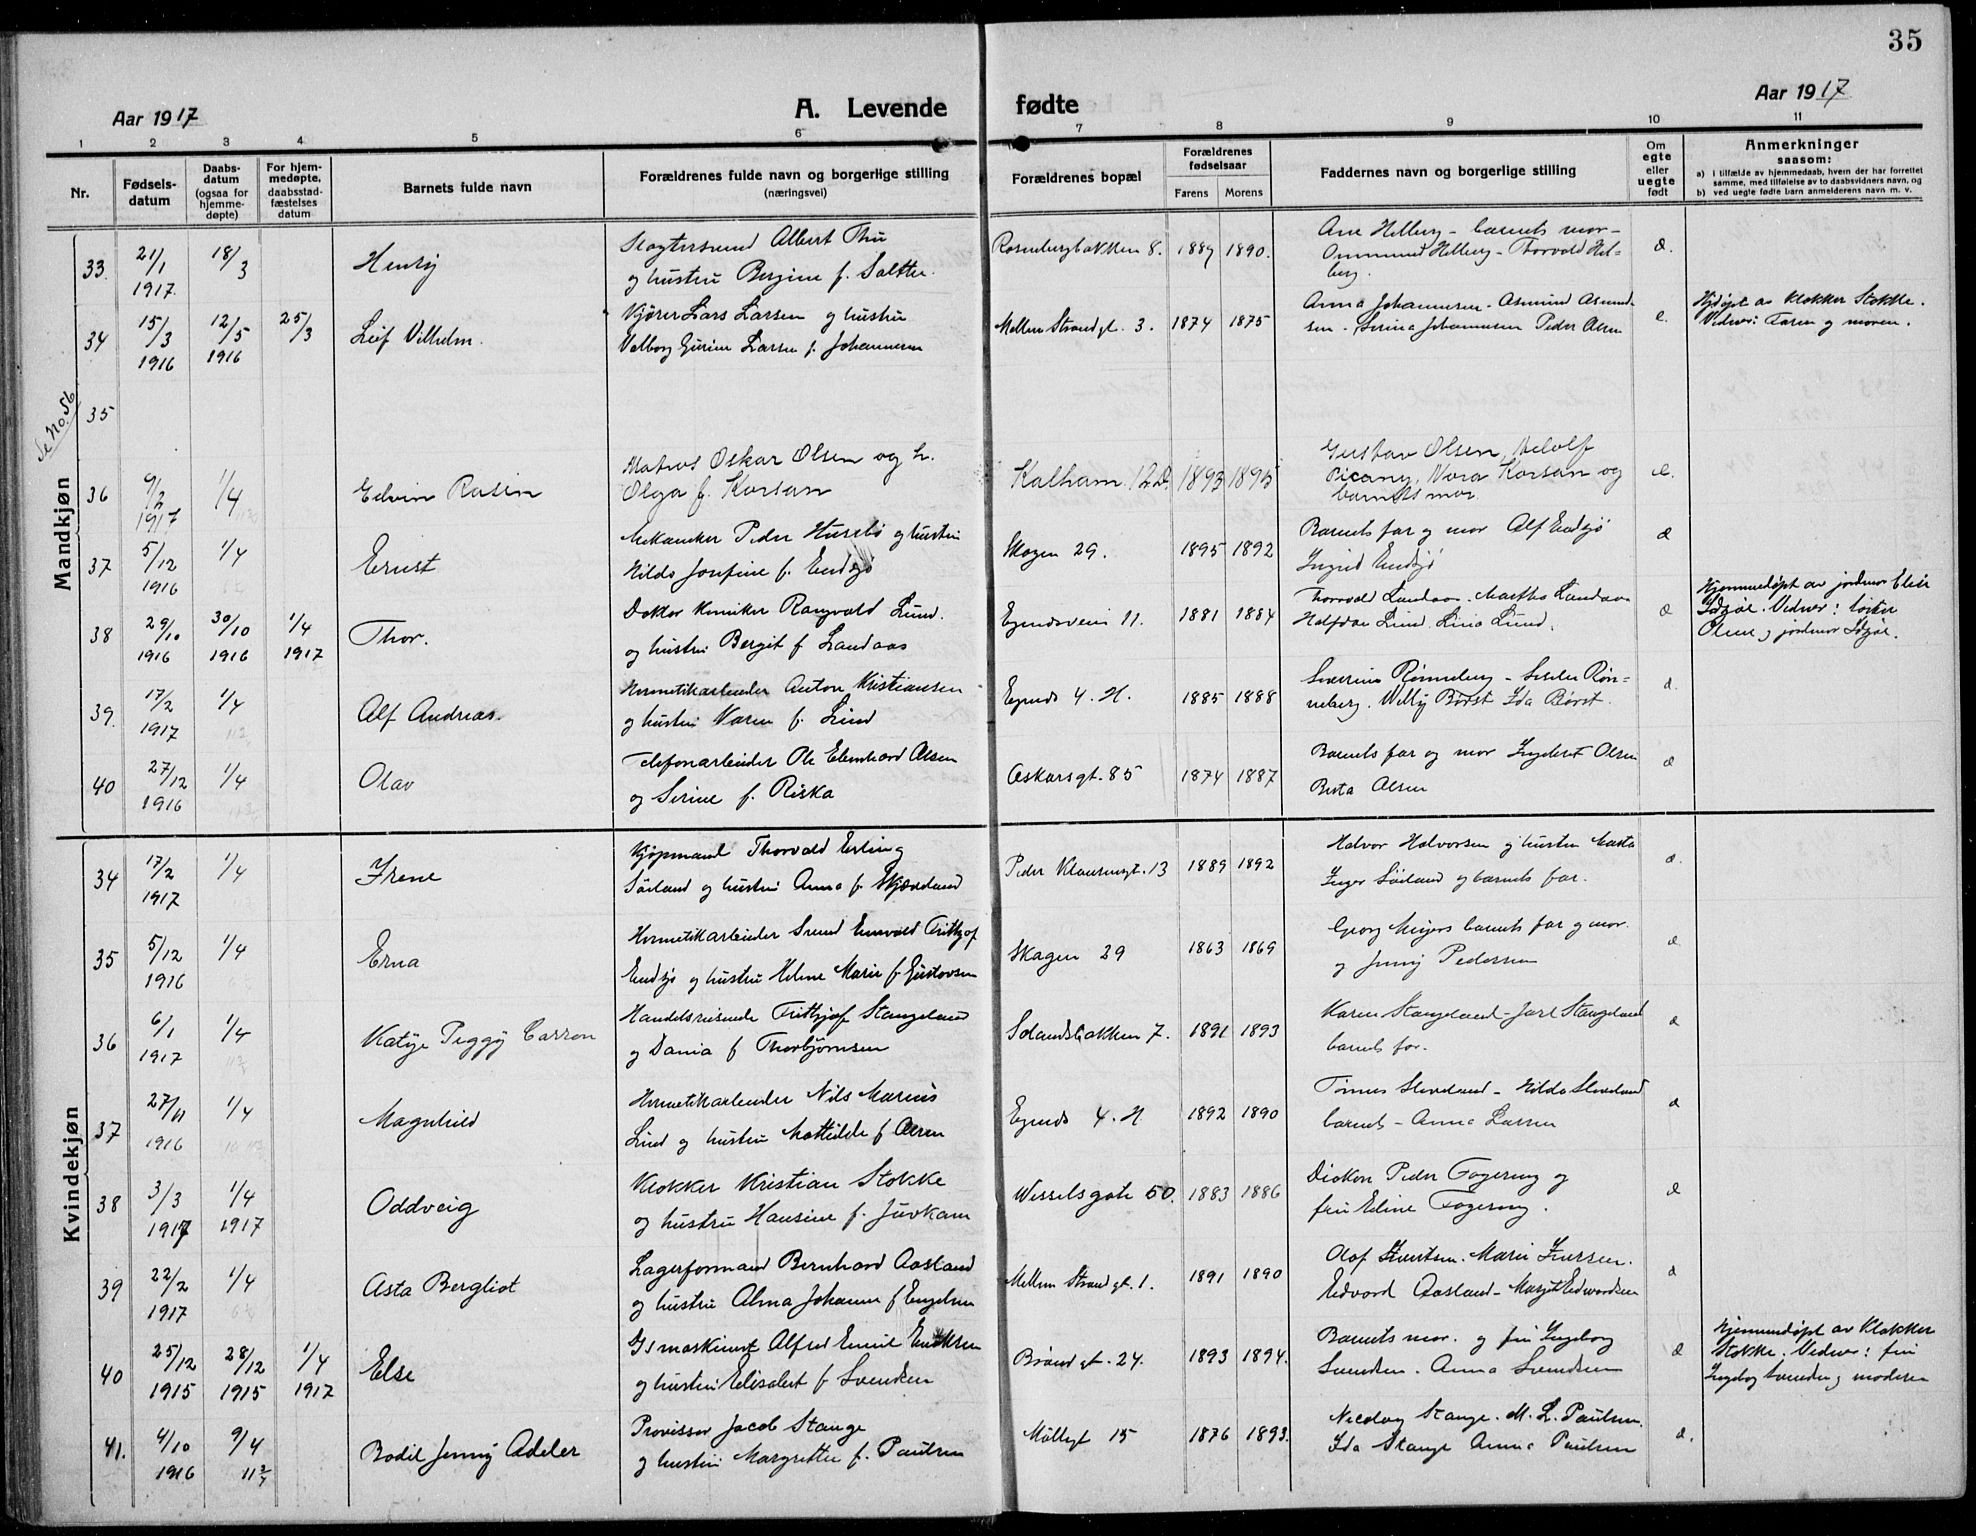 35
Aar 1917 A. Levende fødte Aar 1917
1 2 3 4 5 6 7 8 9 10 11
Nr.
Fødsels-
datum
Daabs-
datum
(ogsaa for
hjemme-
døpte)
For hjem-
medøpte,
daabsstad-
fæstelses
datum
Barnets fulde navn
Forældrenes fulde navn og borgerlige stilling
(næringsvei)
Forældrenes bopæl
Forældrenes
fødselsaar
Farens Morens
Faddernes navn og borgerlige stilling
Om
egte
eller
uegte
født
Anmerkninger
saasom:
a) i tilfælde av hjemmedaab, hvem der har forrettet
samme, med tilføielse av to daabsvidners navn, og
b) ved uegte fødte barn anmelderens navn m. v.
Mandkjøn
33. 21/1 1917. 18/3 Henry
Albert Thu
og hustru Bergine f.
8. 1889 1890.
Helberg - barnets mor -
Helberg - Thorvald Hel-
berg.
34 15/3 1916 12/5 1916 25/3 Leif Vilhelm.
Kjører Lars Larsen og hustru
Valborg Gurine Larsen f. Johannesen
Mellem Strandgt. 3. 1874 1875
Anna Johannesen - Asmund Asmund-
sen - Serina Johannesen Peder Olsen
e.
Hjdøpt av klokker Stokke.
Vidner: Faren og moren.
Se No. 56
35
36 9/2 1917 1/4 Edvin
Matros Oskar Olsen og h.
Olga f. Korsan
Kalham. 12 1893 1895
Gustav Olsen, Adolf
Nora Korsan og
barnets mor
37 5/12 1916 1/4 Ernst
Mekaniker Peder Husebø og hustru
Hilda Josefine f. Endsjø
Skagen 29. 1895 1892
Barnets far og mor Alf Endsjø
Ingrid Endsjø
38 29/10 1916 30/10 1916 1/4 1917 Thor.
Rangvald Lund.
og hustru Bergit f Landaas
11. 1881 1884
Thorvald Landaas. Martha Landaas
Halfdan Lund. Lina Lund.
Hjemmedøpt av jordmor Elise
Vidner:
Olsen og jordmor
39. 17/2 1917 1/4 Alf Andreas.
Hermetikarbeider Anton Kristiansen
og hustru Karen f. Lund
Egends 4. H. 1885 1888
Severine Rønneberg - Røn-
neberg. Willy Børst Ida Børst.
40 27/12 1916 1/4 Olav
Telefonarbeider Ole Edenhard Olsen
og Serine f. Riska
Oskarsgt. 85 1874 1887
Barnets far og mor Ingebret Olsen
Berta Olsen
Kvindekjøn
34 17/2 1917 1/4 Irene
Kjøpmand Thorvald Erling
Sørland og hustru Anna f. Skjæveland
Peder Klausensgt. 13 1889 1892
Halvor Halvorsen og hustru
Inger Sørland og barnets far.
35 5/12 1916 1/4 Erna
Hermetikarbeider Svend Frithjof
Endsjø og hustru Helene Marie f Gustavsen
Skagen 29 1863 1869
Georg barnets far og mor.
og Jenny Pedersen
36 6/1 1917 1/4 Katye Peggy Carron
Handelsreisende Frithjof Stangeland
og Dania f Thorbjørnsen
Solandsbakken 7. 1891 1893
Karen Stangeland - Jarl Stangeland
barnets far.
37 27/11 1916 1/4 Magnhild
Hermetikarbeider Nils Marius
Lind og hustru Mathilde f Olsen
Egends 4. H 1892 1890
barnets - Anna Larsen
38 3/3 1917 1/4 1917 Oddveig
Klokker Kristian Stokke
og hustru Hansine f. Juvkam
Wesselsgate 50. 1883 1886
Diakon Peder Fagering og
fru Edine Fagerng.
39 22/2 1917 1/4 Asta Bergliot
Lagerformand Bernhard Aasland
og hustru Alma Johanne f Engelsen
Mellem Strandgt. 1. 1891 1890
Olaf Sivertsen. Marie Iversen.
Edvard Aasland - Margit Edwardsen
40 25/12 1915 28/12 1915 1/4 1917 Else
Alfred Emil
og hustru Elisabet f Svendsen
24. 1893 1894.
Barnets mor. og fru Ingeborg
Svendsen. Anna Svendsen
Hjemmedøpt av Klokker
Stokke. Vidner: fru
Ingeborg Svendsen og moderen
41. 4/10 1916 9/4 Bodil Jenny Adeler
Provisor Jacob Stange
og hustru Margrethe f. Paulsen
Møllegt 15 1876 1893.
Nicolay Stange. M. L. Paulsen.
Ida Stange Anna Paulsen